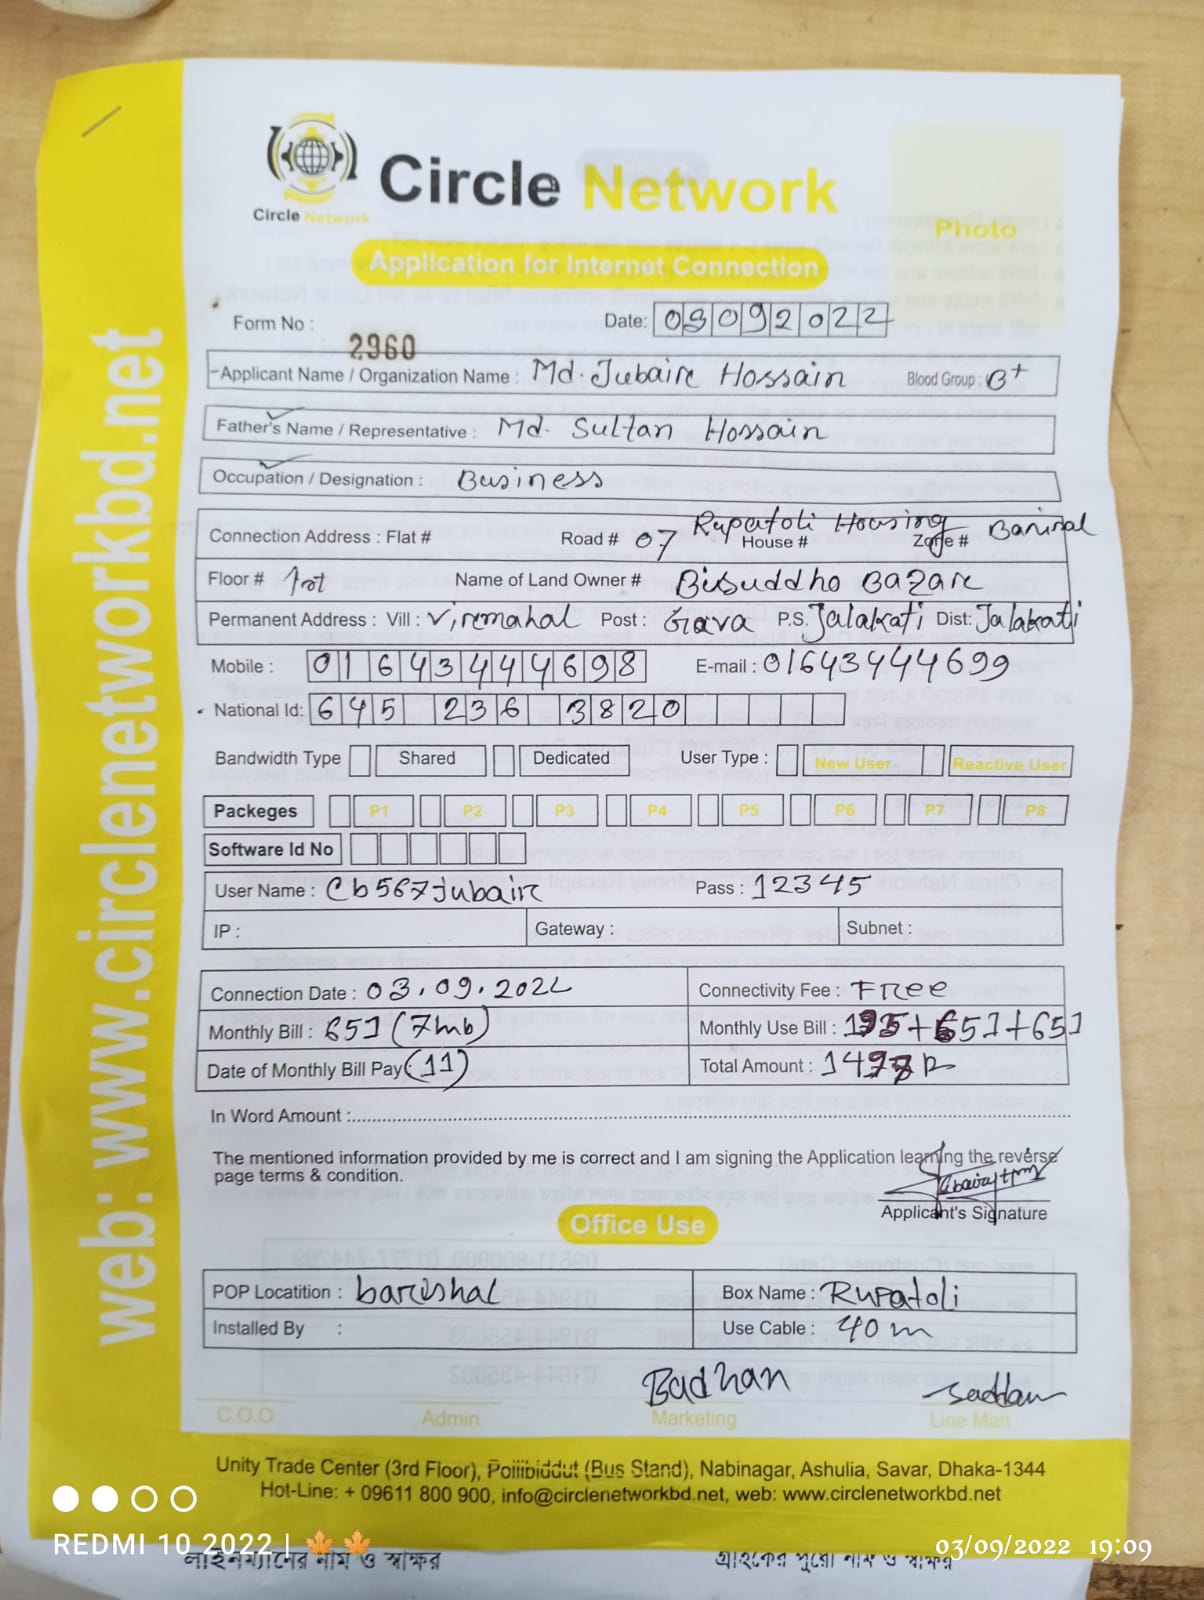 web: www.circlenetworkbd.net
Circle Network
Circle Network
Photo
Application for Internet Connection
Form No : 2960
Date: 03092022
Applicant Name / Organization Name : Md. Jubair Hossain Blood Group : B+
Father's Name / Representative : Md. Sultan Hossain
Occupation / Designation : Business
Rupatoli Housing
Connection Address : Flat # Road # 07 House # Zone # Barisal
Floor # 1st Name of Land Owner # Bisuddho Bazar
Permanent Address : Vill : Viremahal Post : Gava P.S. Jalakati Dist: Jalakati
Mobile : 01643444698 E-mail : 01643444699
National Id: 645 236 3820
Bandwidth Type Shared Dedicated User Type : New User Reactive User
Packeges P1 P2 P3 P4 P5 P6 P7 P8
Software Id No
User Name : Cb567jubair Pass : 12345
IP : Gateway : Subnet :
Connection Date : 03.09.2022 Connectivity Fee : Free
Monthly Bill : 651 (7mb) Monthly Use Bill : +651+651
Date of Monthly Bill Pay (11) Total Amount :
In Word Amount :
The mentioned information provided by me is correct and I am signing the Application learning the reverse
page terms & condition.
Applicant's Signature
Office Use
POP Locatition : barishal Box Name : Rupatoli
Installed By : Use Cable : 40m
Badhan
C.O.O Admin Marketing Line Man
Unity Trade Center (3rd Floor), Pollibiddut (Bus Stand), Nabinagar, Ashulia, Savar, Dhaka-1344
Hot-Line: + 09611 800 900, info@circlenetworkbd.net, web: www.circlenetworkbd.net
REDMI 10 2022 |
03/09/2022 19:09
লাইনম্যানের নাম ও স্বাক্ষর গ্রাহকের পুরো নাম ও স্বাক্ষর